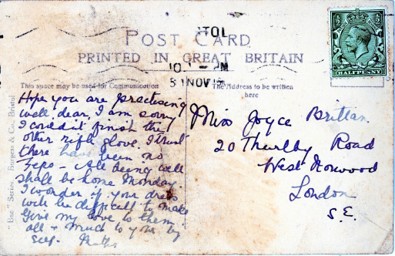 POST CARD
PRINTED IN GREAT BRITAIN
This space may be used for Communication
The Address to be written
here
HALFPENNY
Hope you are practising
well dear, I am sorry
I couldn't finish the
other glove. I trust
there have been no
- All being well
shall be home Monday.
I wonder if your dress
will be difficult to make
Give my love to them
all & much to your
self.
Miss Joyce Brittan
20 Thurlby Road
West Norwood
London
S.E.
"Dux" Series, Burgess & Co., Bristol
NOV